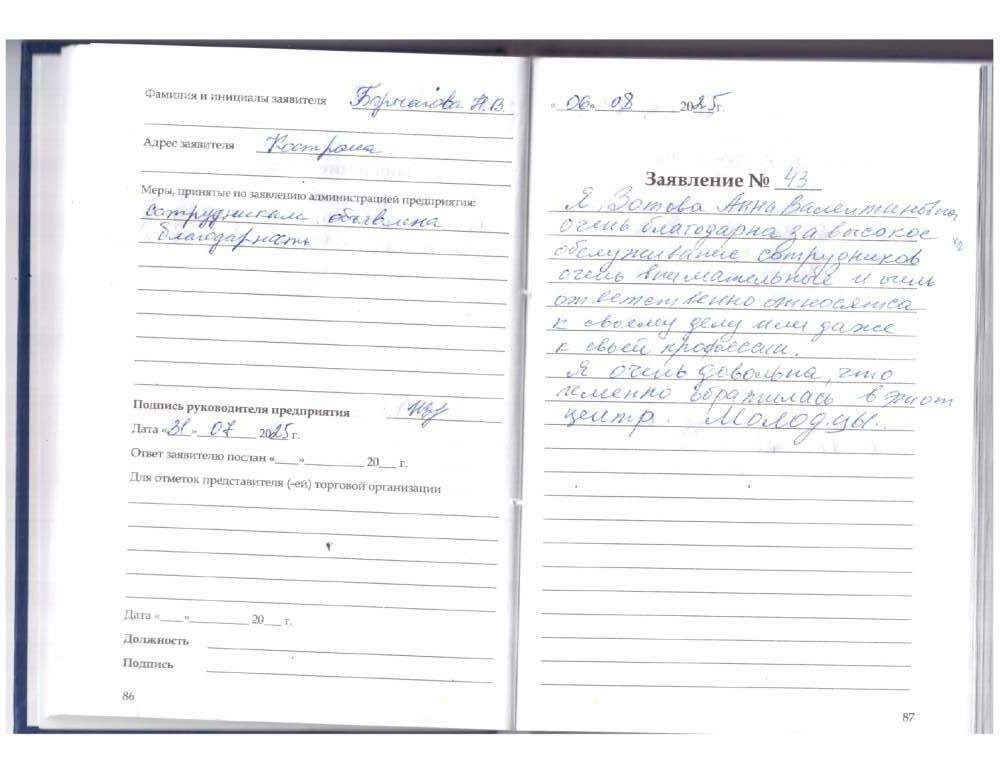 Фамилия и инициалы заявителя А.В
Адрес заявителя Кострома
Меры, принятые по заявлению администрацией предприятия:
сотрудникам объявлена
благодарность
Подпись руководителя предприятия
Дата «31» 07 2025г.
Ответ заявителю послан «___»__________ 20___ г.
Для отметок представителя (-ей) торговой организации
Дата «____»__________ 20___ г.
Должность
Подпись
86
«06» 08 2025г.
Заявление № 43
Я, Зотова Анна Валентиновна,
очень благодарна за высокое
обслуживание сотрудников
очень внимательные и очень
ответственно относятся
к своему делу или даже
к своей профессии.
Я очень довольна, что
именно обратилась в этот
центр. Молодцы.
87